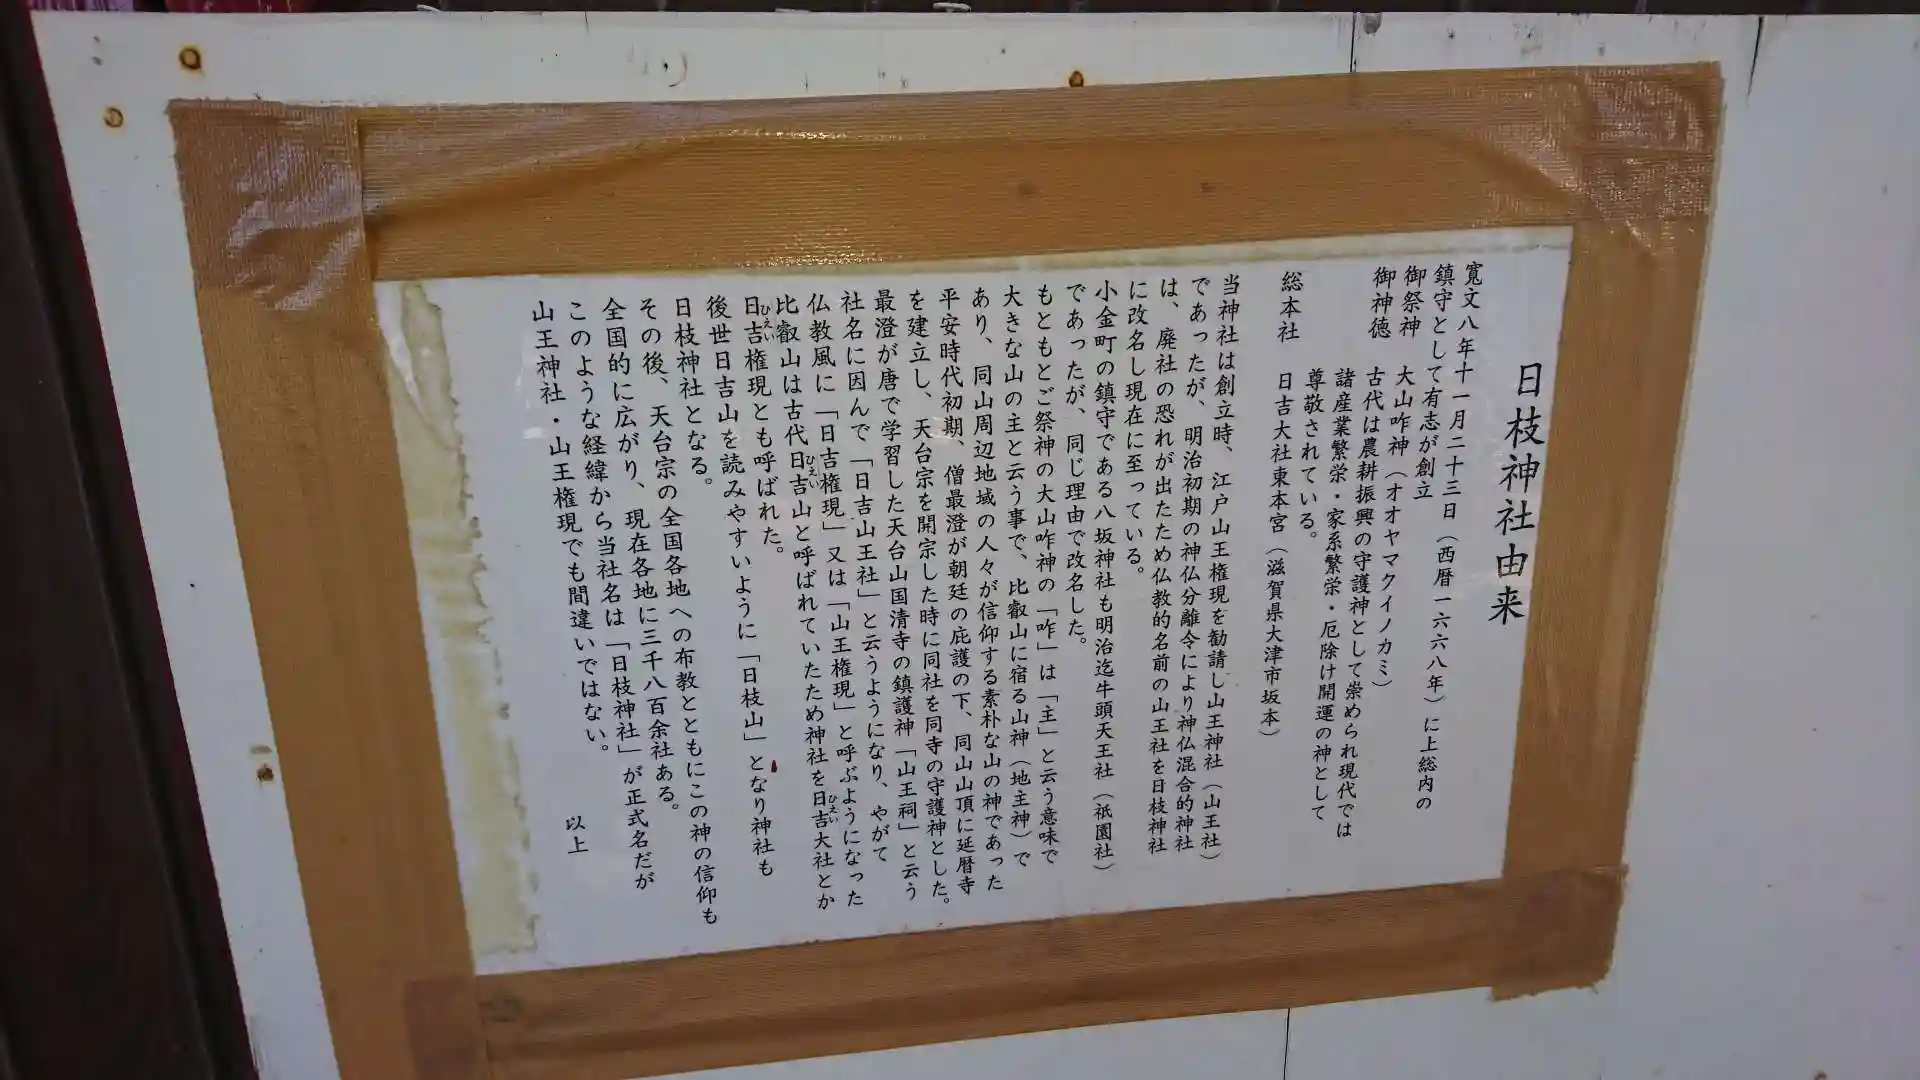 日枝神社由来
寛文八年十一月二十三日（西暦一六六八年）に上総内の
鎮守として有志が創立
御祭神　大山咋神（オオヤマクイノカミ）
御神徳　古代は農耕振興の守護神として崇められ現代では
諸産業繁栄・家系繁栄・厄除け開運の神として
尊敬されている。
総本社　日吉大社東本宮（滋賀県大津市坂本）
当神社は創立時、江戸山王権現を勧請し山王神社（山王社）
であったが、明治初期の神仏分離令により神仏混合的神社
は、廃社の恐れが出たため仏教的名前の山王社を日枝神社
に改名し現在に至っている。
小金町の鎮守である八坂神社も明治迄牛頭天王社（祇園社）
であったが、同じ理由で改名した。
もともとご祭神の大山咋神の「咋」は「主」と云う意味で
大きな山の主と云う事で、比叡山に宿る山神（地主神）で
あり、同山周辺地域の人々が信仰する素朴な山の神であった
平安時代初期、僧最澄が朝廷の庇護の下、同山山頂に延暦寺
を建立し、天台宗を開宗した時に同社を同寺の守護神とした。
最澄が唐で学習した天台山国清寺の鎮護神「山王祠」と云う
社名に因んで「日吉山王社」と云うようになり、やがて
仏教風に「日吉権現」又は「山王権現」と呼ぶようになった
比叡山は古代日吉山と呼ばれていたため神社を日吉大社とか
日吉権現とも呼ばれた。
後世日吉山を読みやすいように「日枝山」となり神社も
日枝神社となる。
その後、天台宗の全国各地への布教とともにこの神の信仰も
全国的に広がり、現在各地に三千八百余社ある。
このような経緯から当社名は「日枝神社」が正式名だが
山王神社・山王権現でも間違いではない。
以上